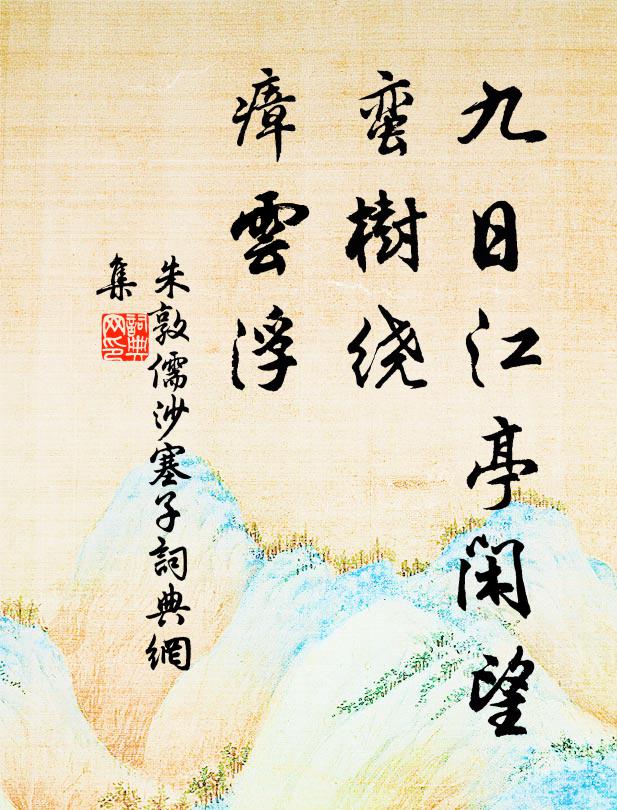 九日江亭闲望
蛮樹绕
瘴雲浮
朱敦儒沙塞子詞典網
集
詞典网印